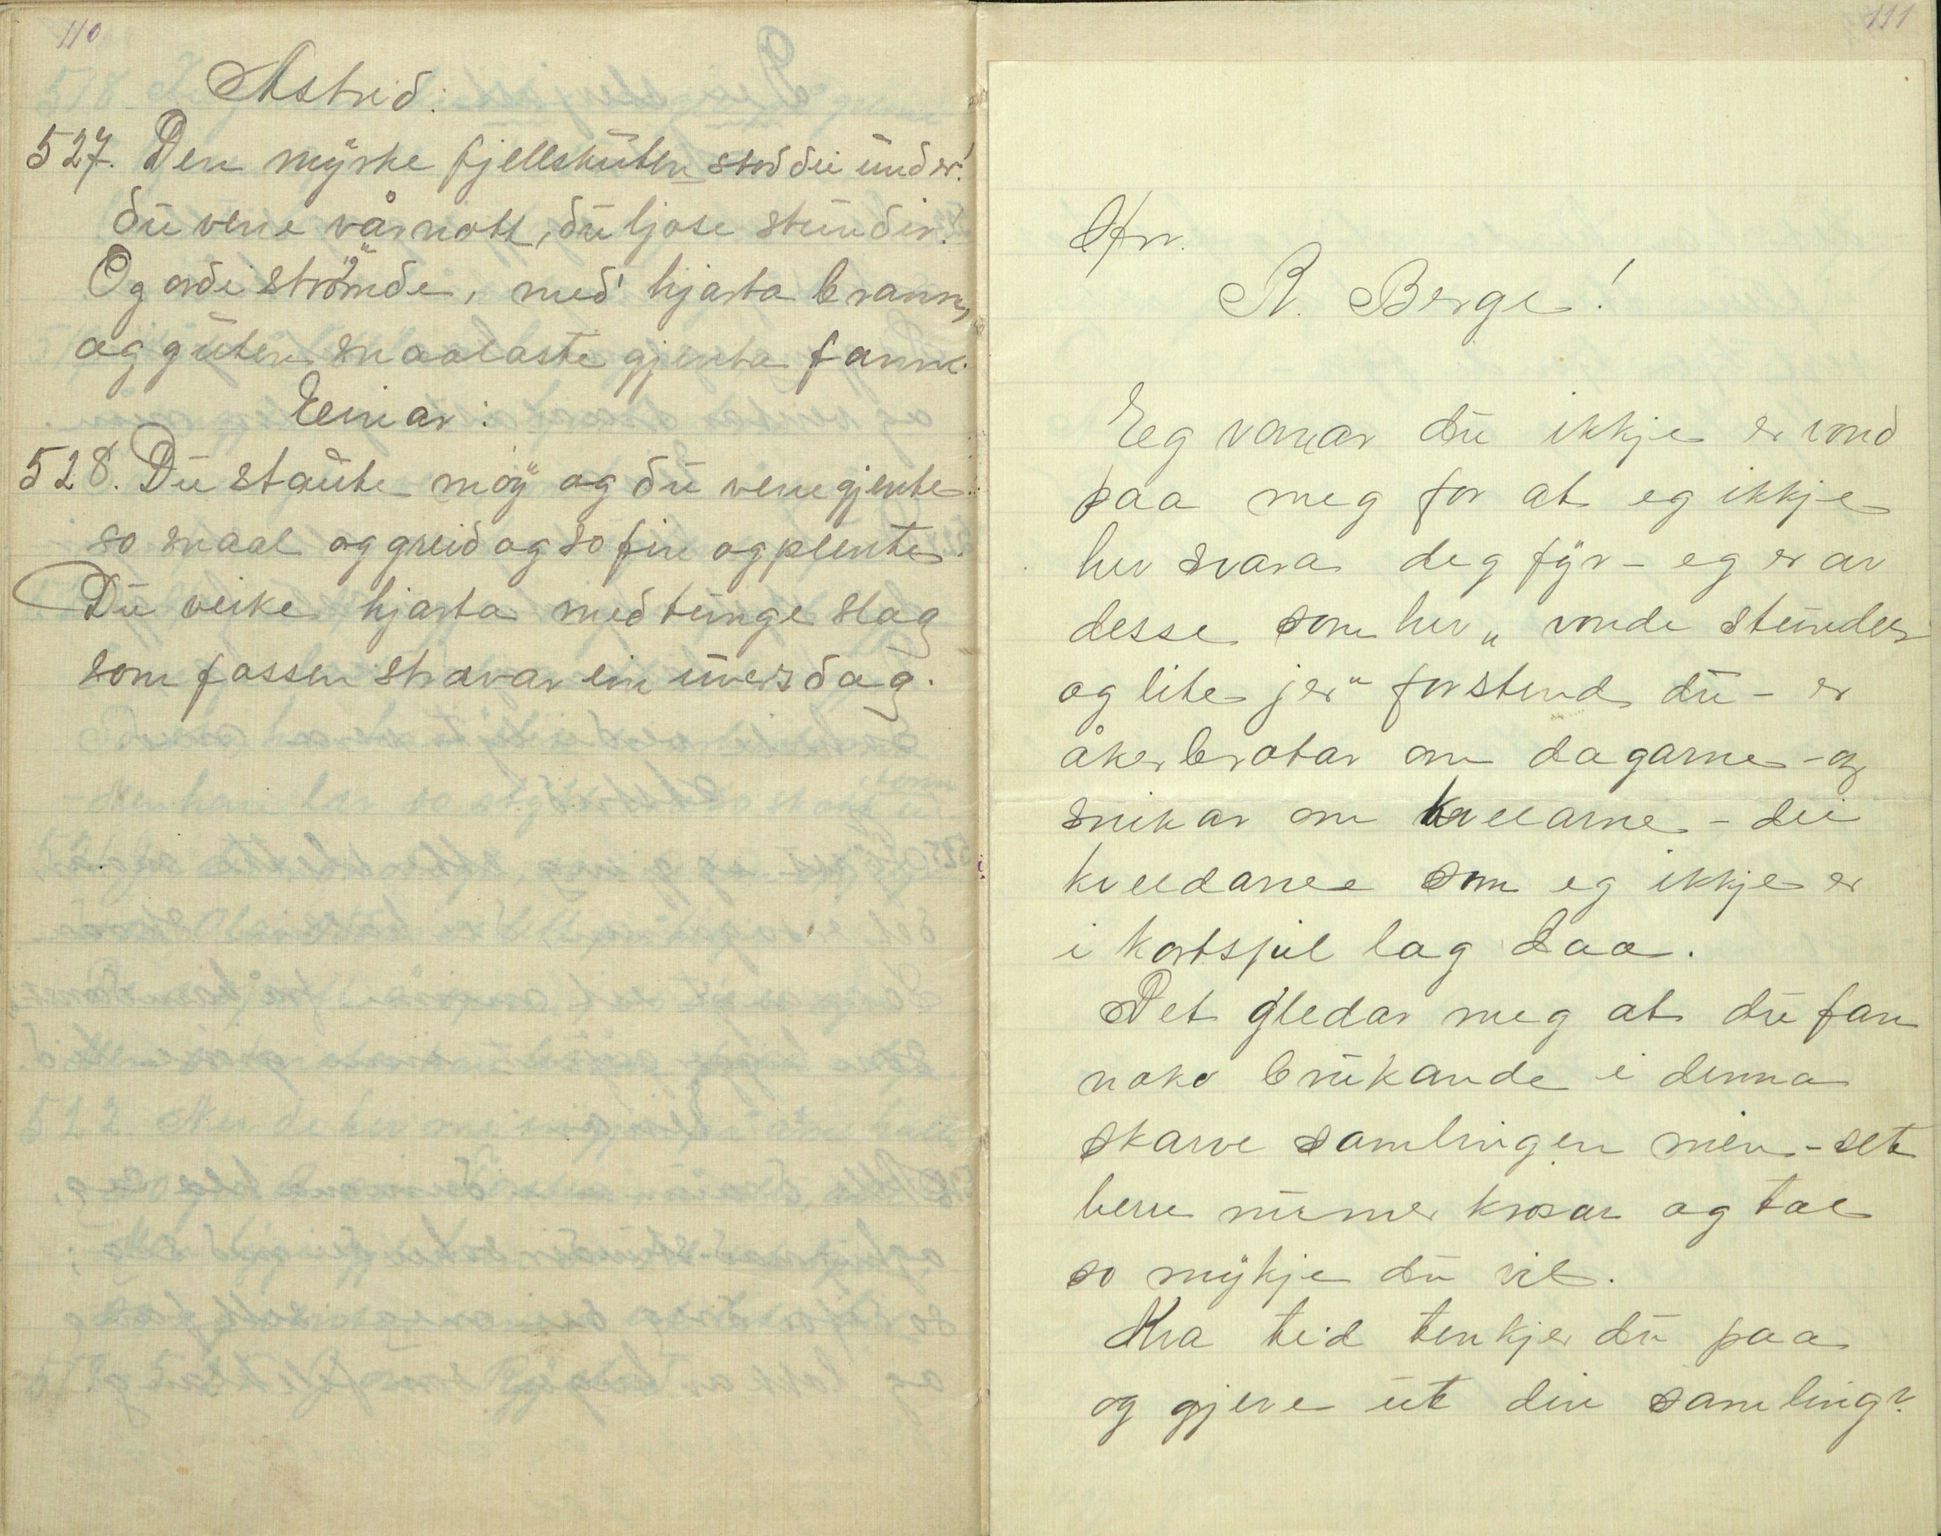 110
Astrid:
527. Den myrke fjellskuten stod dei under!
du vene vårnott, du ljose stunder!
Og ordi strömde, med hjarta brann,
og guten snaalaste gjenta fann.
Einar:
528. Du staute möy og du vene gjente
so snaal og greid og so fin og plente.
Du veike hjarta med tunge slag
som fossen stravar ein uversdag.
111
Hr.
R. Berge!
Eg vonar du ikkje er vond
paa meg for at eg ikkje
hev svara deg fyr - eg er av
desse som hev „vonde stunder
og lite jer" forstend du - er
åkerbrotar om dagarne - og
snikar om kvellarne - dei
kveldarne som eg ikkje er
i kortspil lag daa.
Det gledar meg at du fan
noko brukande i denna
skarve samlingen min - set
berre numer krosar og tal
so mykje du vil.
Kva tid tenkjer du paa
og gjeve ut din samling?